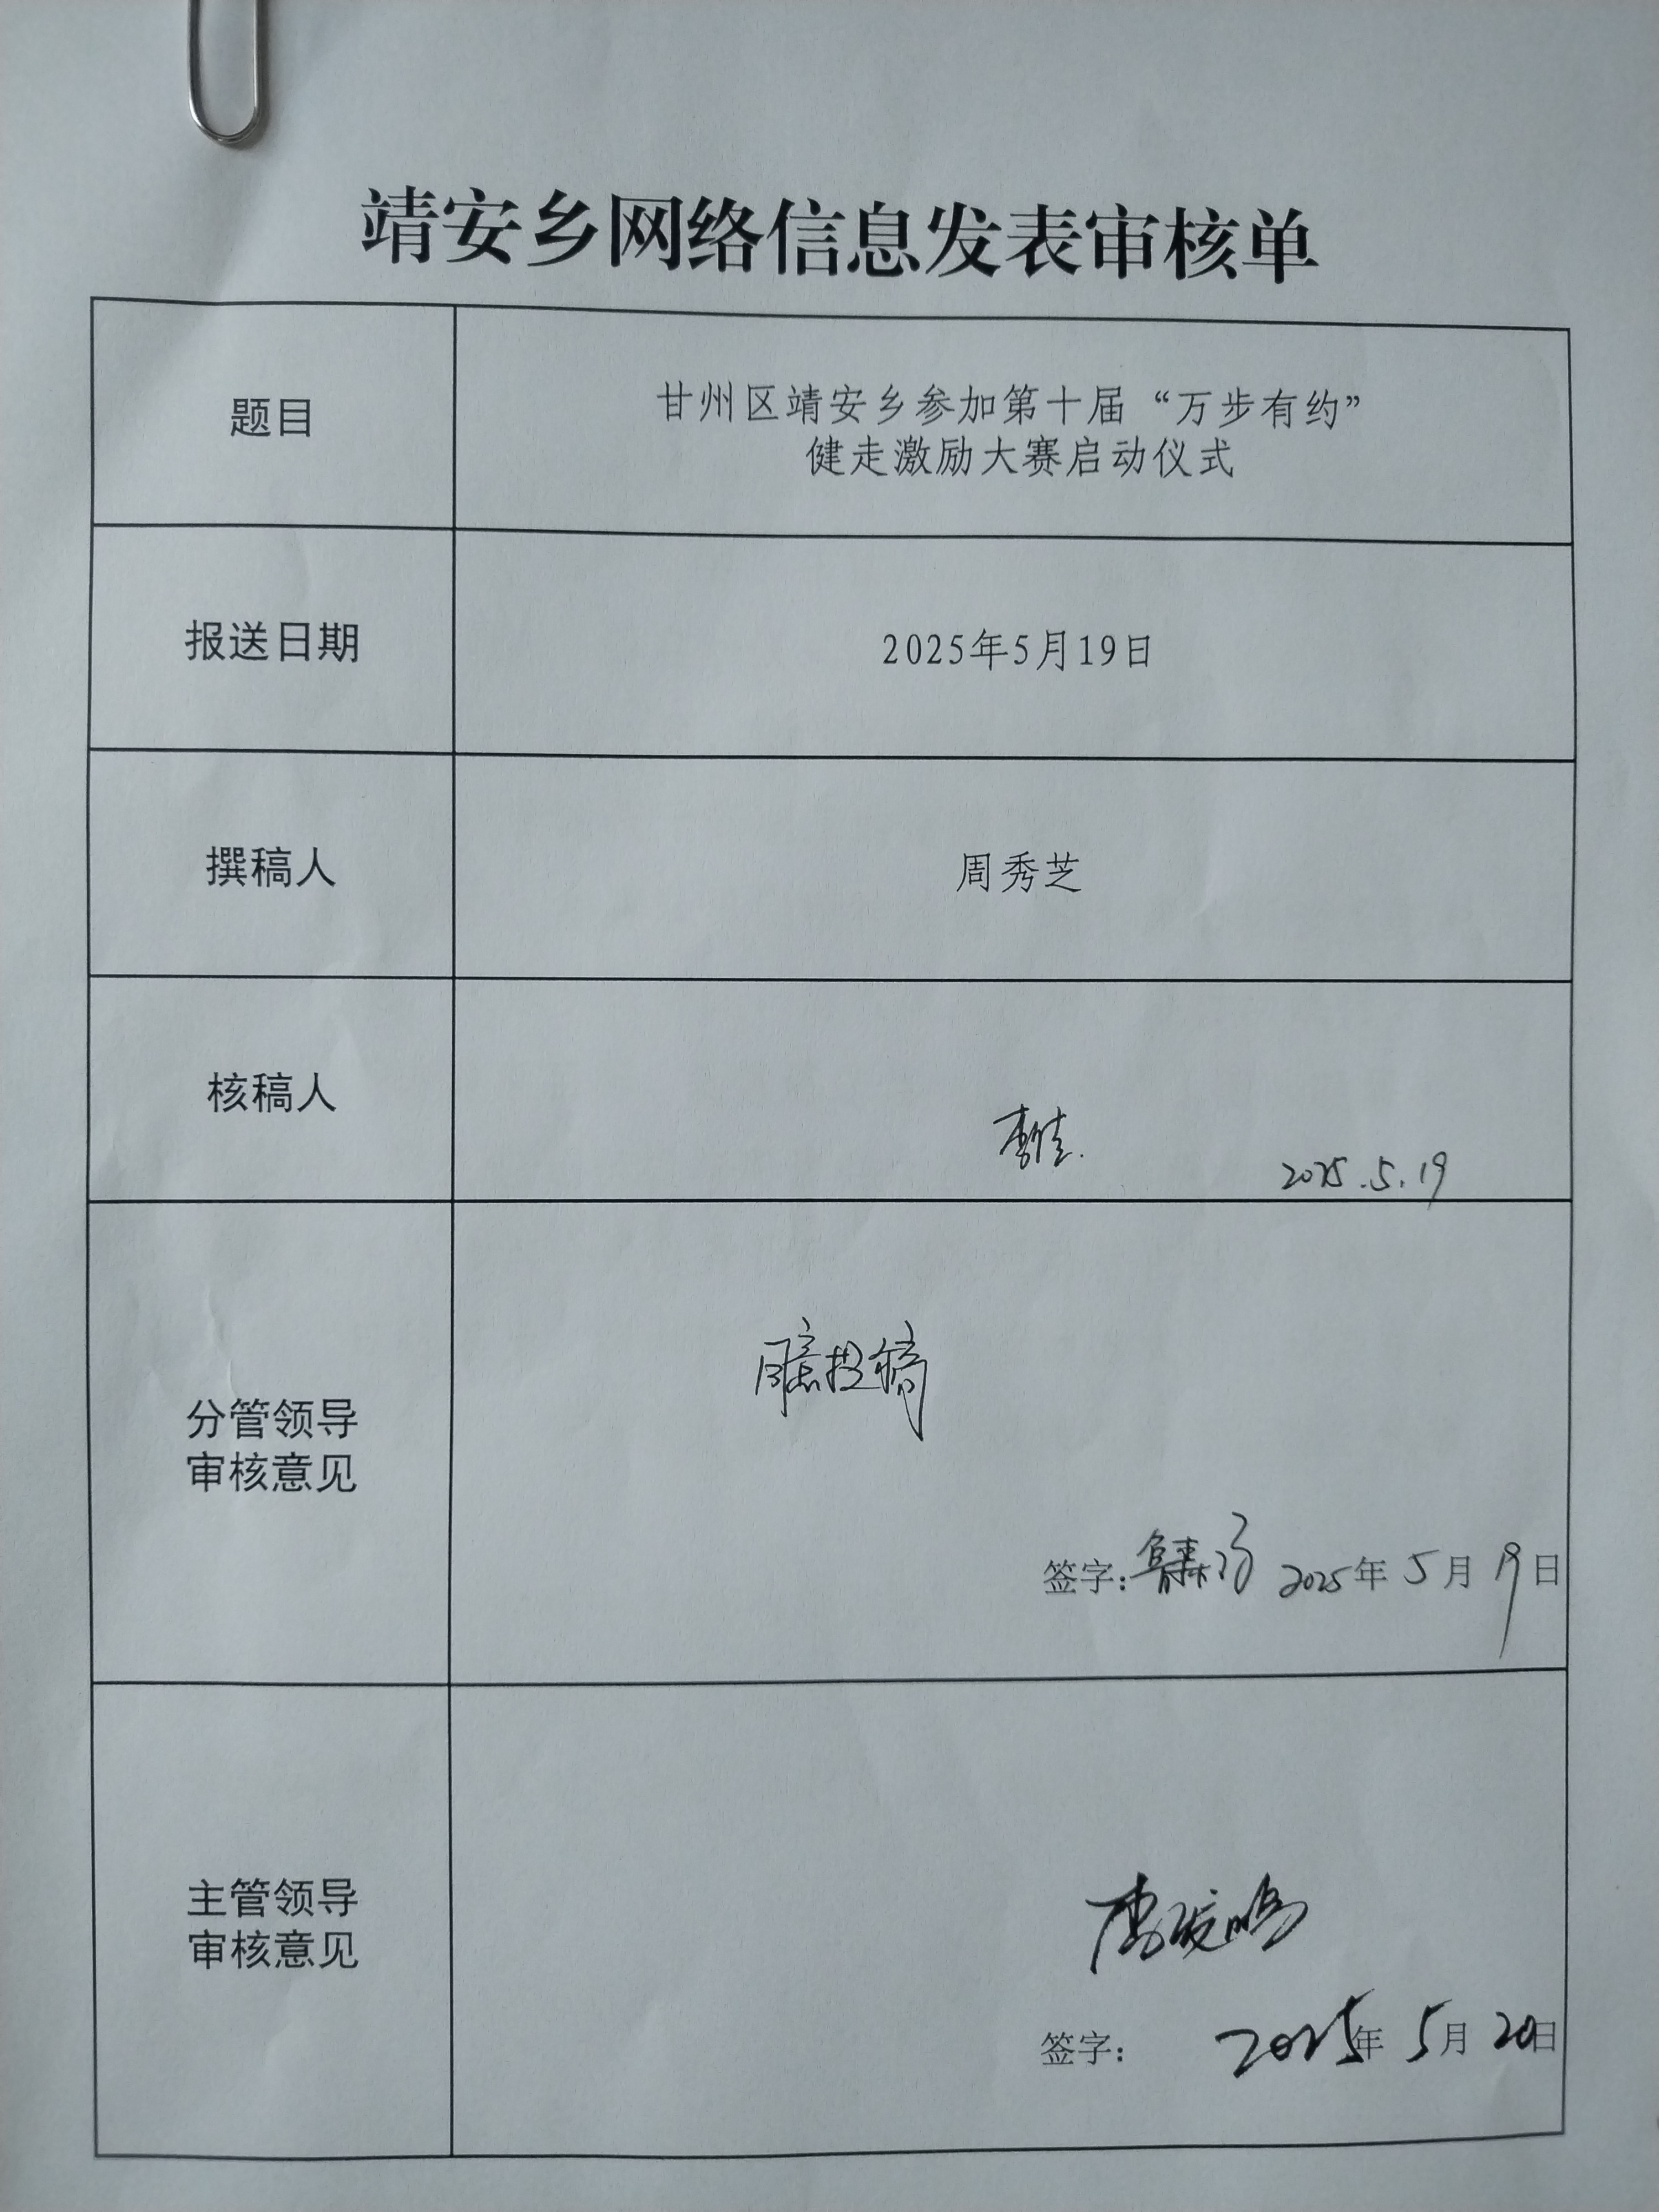 靖安乡网络信息发表审核单
题目
甘州区靖安乡参加第十届“万步有约”
健走激励大赛启动仪式
报送日期
2025年5月19日
撰稿人
周秀芝
核稿人
2025.5.19
分管领导
审核意见
同意投稿
签字: 2025年5月19日
主管领导
审核意见
签字: 2025年5月20日